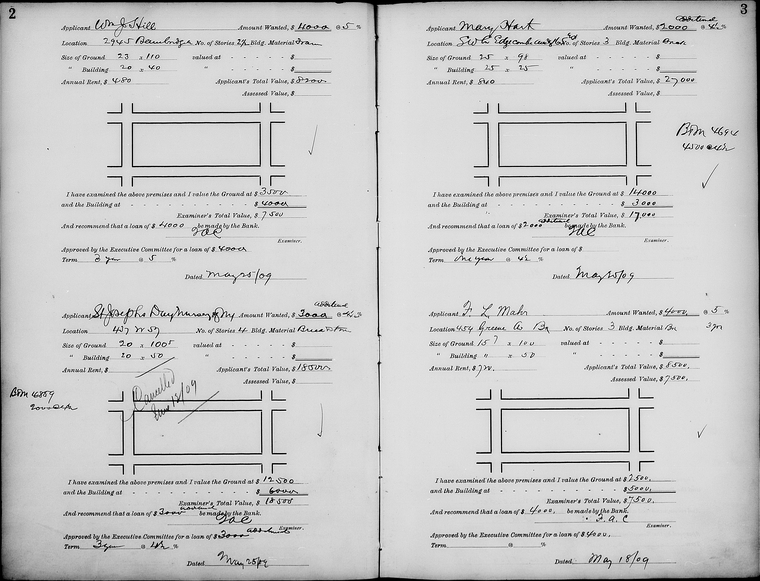 2
Applicant Wm J. Hill Amount Wanted, $ 4000 @ 5 %
Location 2945 Bainbridge No. of Stories 2½ Bldg. Material Frame
Size of Ground 23 x 110 valued at - - - - $
" Building 20 x 40 " - - - - $
Annual Rent, $ 480 Applicant's Total Value, $ 8200
Assessed Value, $
I have examined the above premises and I value the Ground at $ 3500
and the Building at - - - - - - - - $ 4000
Examiner's Total Value, $ 7500
And recommend that a loan of $ 4000 be made by the Bank.
Examiner.
Approved by the Executive Committee for a loan of $ 4000
Term 3 yrs @ 5 %
Dated May 25/09
Applicant St Josephs Day Nursery of NY Amount Wanted, $ 3000 additional @ 4½
Location 437 W 57 No. of Stories 4 Bldg. Material
Size of Ground 20 x 100 valued at - - - - $
" Building 20 x 50 " - - - - $
Annual Rent, $ Applicant's Total Value, $ 18500
Assessed Value, $
B&M 4859
Cancelled
June 12/09
I have examined the above premises and I value the Ground at $ 12500
and the Building at - - - - - - - - $ 6000
Examiner's Total Value, $ 18500
And recommend that a loan of $ 3000 additional be made by the Bank.
Examiner.
Approved by the Executive Committee for a loan of $ 3000 additional
Term 3 yrs @ 4½ %
Dated May 25/09
3
Applicant Mary Hart Amount Wanted, $ 2000 additional @ 4½ %
Location No. of Stories 3 Bldg. Material
Size of Ground 25 x 98 valued at - - - - $
" Building 25 x 25 " - - - - $
Annual Rent, $ 840 Applicant's Total Value, $ 27,000
Assessed Value, $
B&M 4694
4500 @ 4½
I have examined the above premises and I value the Ground at $ 14000
and the Building at - - - - - - - - $ 3000
Examiner's Total Value, $ 17,000
And recommend that a loan of $ 2000 additional be made by the Bank.
Examiner.
Approved by the Executive Committee for a loan of $
Term One year @ 4½ %
Dated May 25/09
Applicant F. L. Mahr Amount Wanted, $ 4000 @ 5 %
Location 454 Greene Av Bn No. of Stories 3 Bldg. Material Bn
Size of Ground 15 x 100 valued at - - - - $
" Building " x 50 " - - - - $
Annual Rent, $ Applicant's Total Value, $ 8500.
Assessed Value, $ 7500.
I have examined the above premises and I value the Ground at $ 2500.
and the Building at - - - - - - - - $ 5000.
Examiner's Total Value, $ 7500.
And recommend that a loan of $ 4000. be made by the Bank.
F. A. C
Examiner.
Approved by the Executive Committee for a loan of $ 4000.
Term @ %
Dated May 18/09